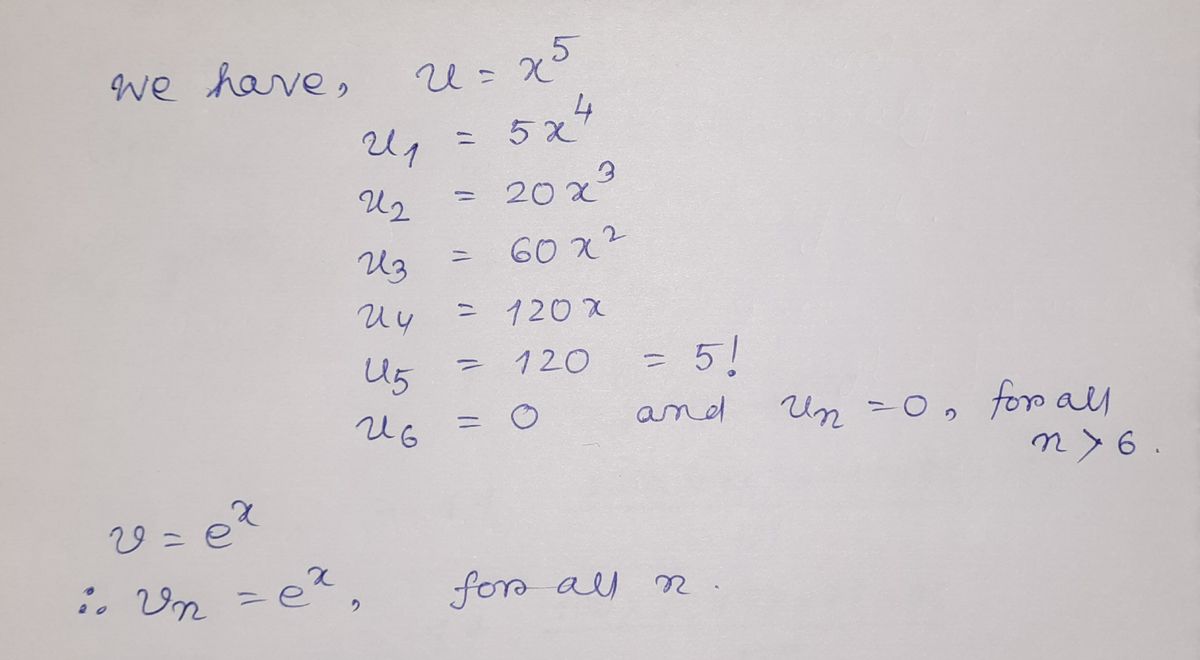 we have, u = x⁵
u₁ = 5x⁴
u₂ = 20x³
u₃ = 60x²
u₄ = 120x
u₅ = 120 = 5!
u₆ = 0 and uₙ = 0, for all
n > 6.
v = eˣ
∴ vₙ = eˣ, for all n.